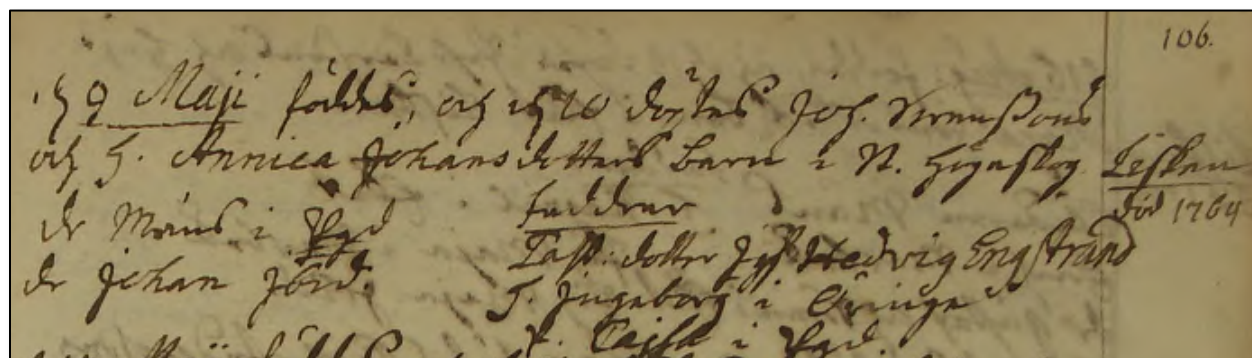 106.
d. 9 Maji föddes, och d. 10 döptes Joh. Svenssons
och h. Annica Johansdotters barn i St. Högaskog Lisken
död 1764
faddrar
dr Måns i
dr Johan ibid.
Past: dotter Jgf Hedvig Engstrand
h. Ingeborg i Öringe
Cajsa i